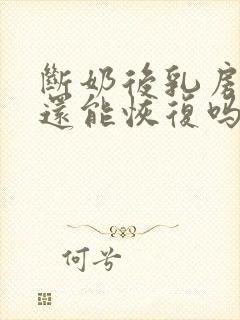 斷奶後乳房
還能恢復嗎
何兮